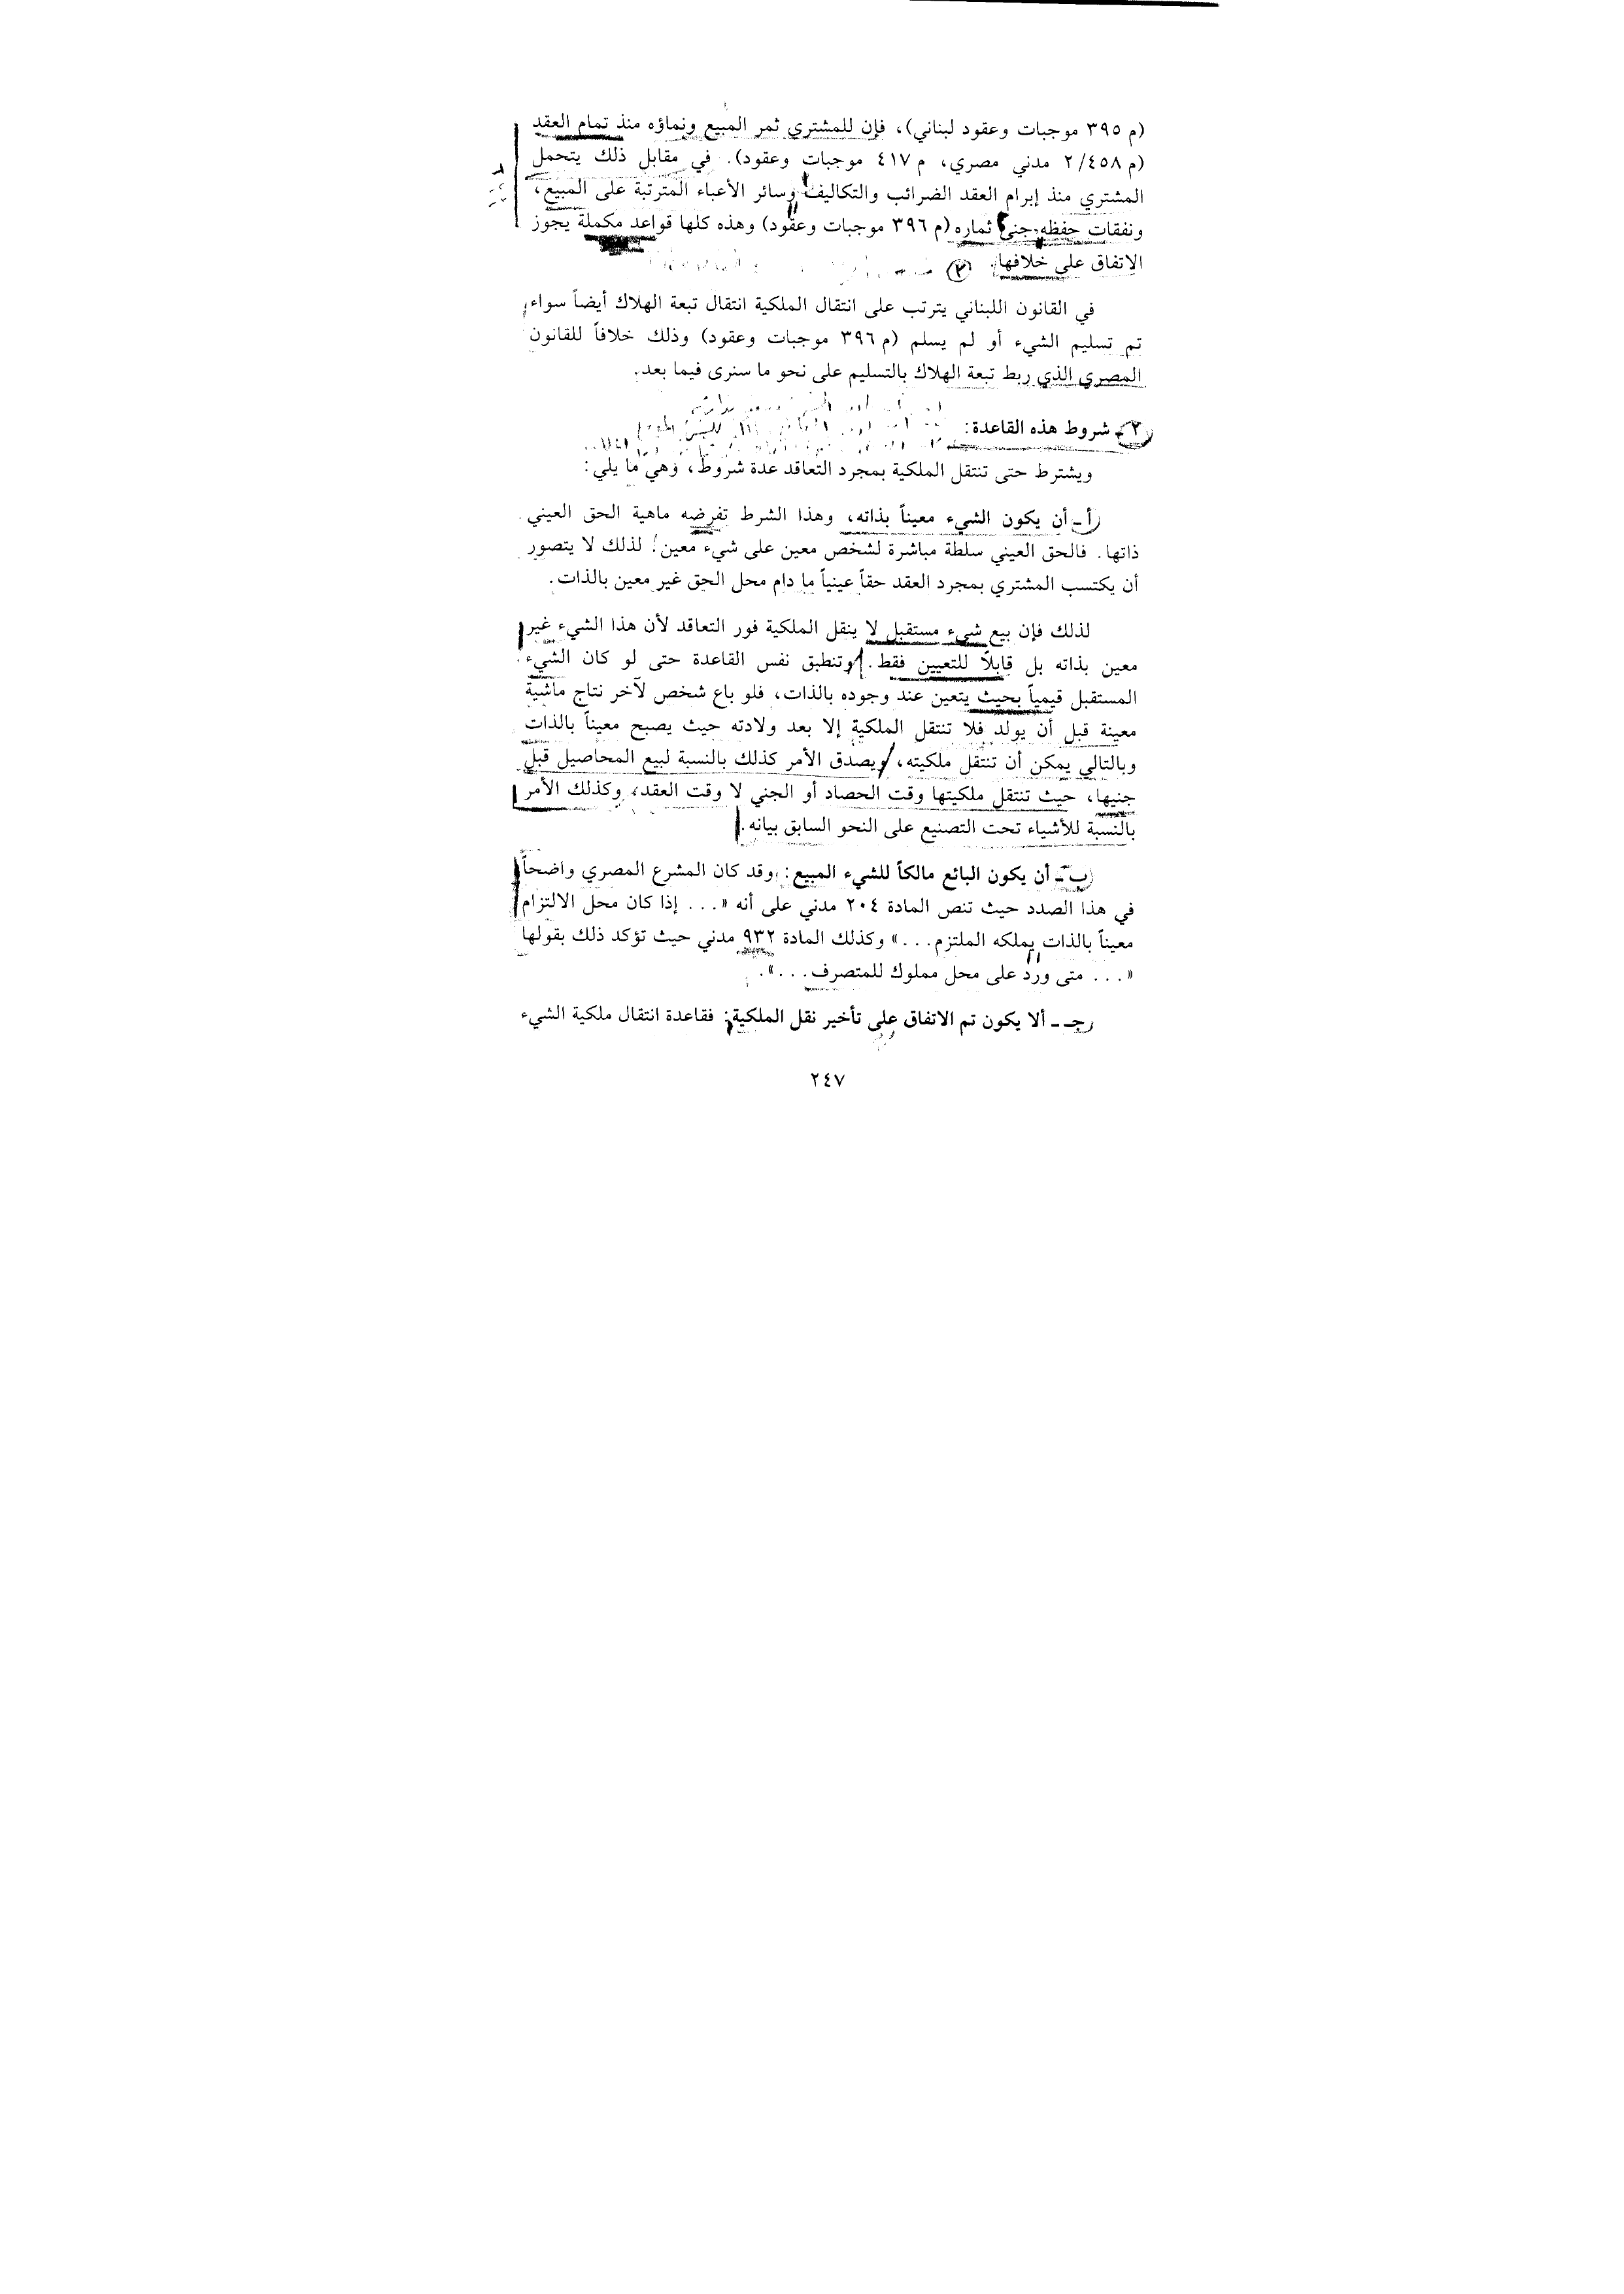 (م ٣٩٥ موجبات وعقود لبناني)، فإن للمشتري ثمر المبيع ونماؤه منذ تمام العقد
(م ٢/٤٥٨ مدني مصري، م ٤١٧ موجبات وعقود). في مقابل ذلك يتحمل
المشتري منذ إبرام العقد الضرائب والتكاليف وسائر الأعباء المترتبة على المبيع،
ونفقات حفظه وجني ثماره (م ٣٩٦ موجبات وعقود) وهذه كلها قواعد مكملة يجوز
الاتفاق على خلافها.
في القانون اللبناني يترتب على انتقال الملكية انتقال تبعة الهلاك أيضاً سواء
تم تسليم الشيء أو لم يسلم (م ٣٩٦ موجبات وعقود) وذلك خلافاً للقانون
المصري الذي ربط تبعة الهلاك بالتسليم على نحو ما سنرى فيما بعد.
٢ - شروط هذه القاعدة:
ويشترط حتى تنتقل الملكية بمجرد التعاقد عدة شروط، وهي ما يلي:
أ ـ أن يكون الشيء معيناً بذاته، وهذا الشرط تفرضه ماهية الحق العيني
ذاتها. فالحق العيني سلطة مباشرة لشخص معين على شيء معين. لذلك لا يتصور
أن يكتسب المشتري بمجرد العقد حقاً عينياً ما دام محل الحق غير معين بالذات.
لذلك فإن بيع شيء مستقبل لا ينقل الملكية فور التعاقد لأن هذا الشيء غير
معين بذاته بل قابلاً للتعيين فقط. وتنطبق نفس القاعدة حتى لو كان الشيء
المستقبل قيمياً بحيث يتعين عند وجوده بالذات، فلو باع شخص لآخر نتاج ماشية
معينة قبل أن يولد فلا تنتقل الملكية إلا بعد ولادته حيث يصبح معيناً بالذات
وبالتالي يمكن أن تنتقل ملكيته، ويصدق الأمر كذلك بالنسبة لبيع المحاصيل قبل
جنيها، حيث تنتقل ملكيتها وقت الحصاد أو الجني لا وقت العقد، وكذلك الأمر
بالنسبة للأشياء تحت التصنيع على النحو السابق بيانه.
ب ـ أن يكون البائع مالكاً للشيء المبيع: وقد كان المشرع المصري واضحاً
في هذا الصدد حيث تنص المادة ٢٠٤ مدني على أنه «... إذا كان محل الالتزام
معيناً بالذات يملكه الملتزم...» وكذلك المادة ٩٣٢ مدني حيث تؤكد ذلك بقولها
«... متى ورد على محل مملوك للمتصرف...».
جـ ـ ألا يكون تم الاتفاق على تأخير نقل الملكية: فقاعدة انتقال ملكية الشيء
٢٤٧